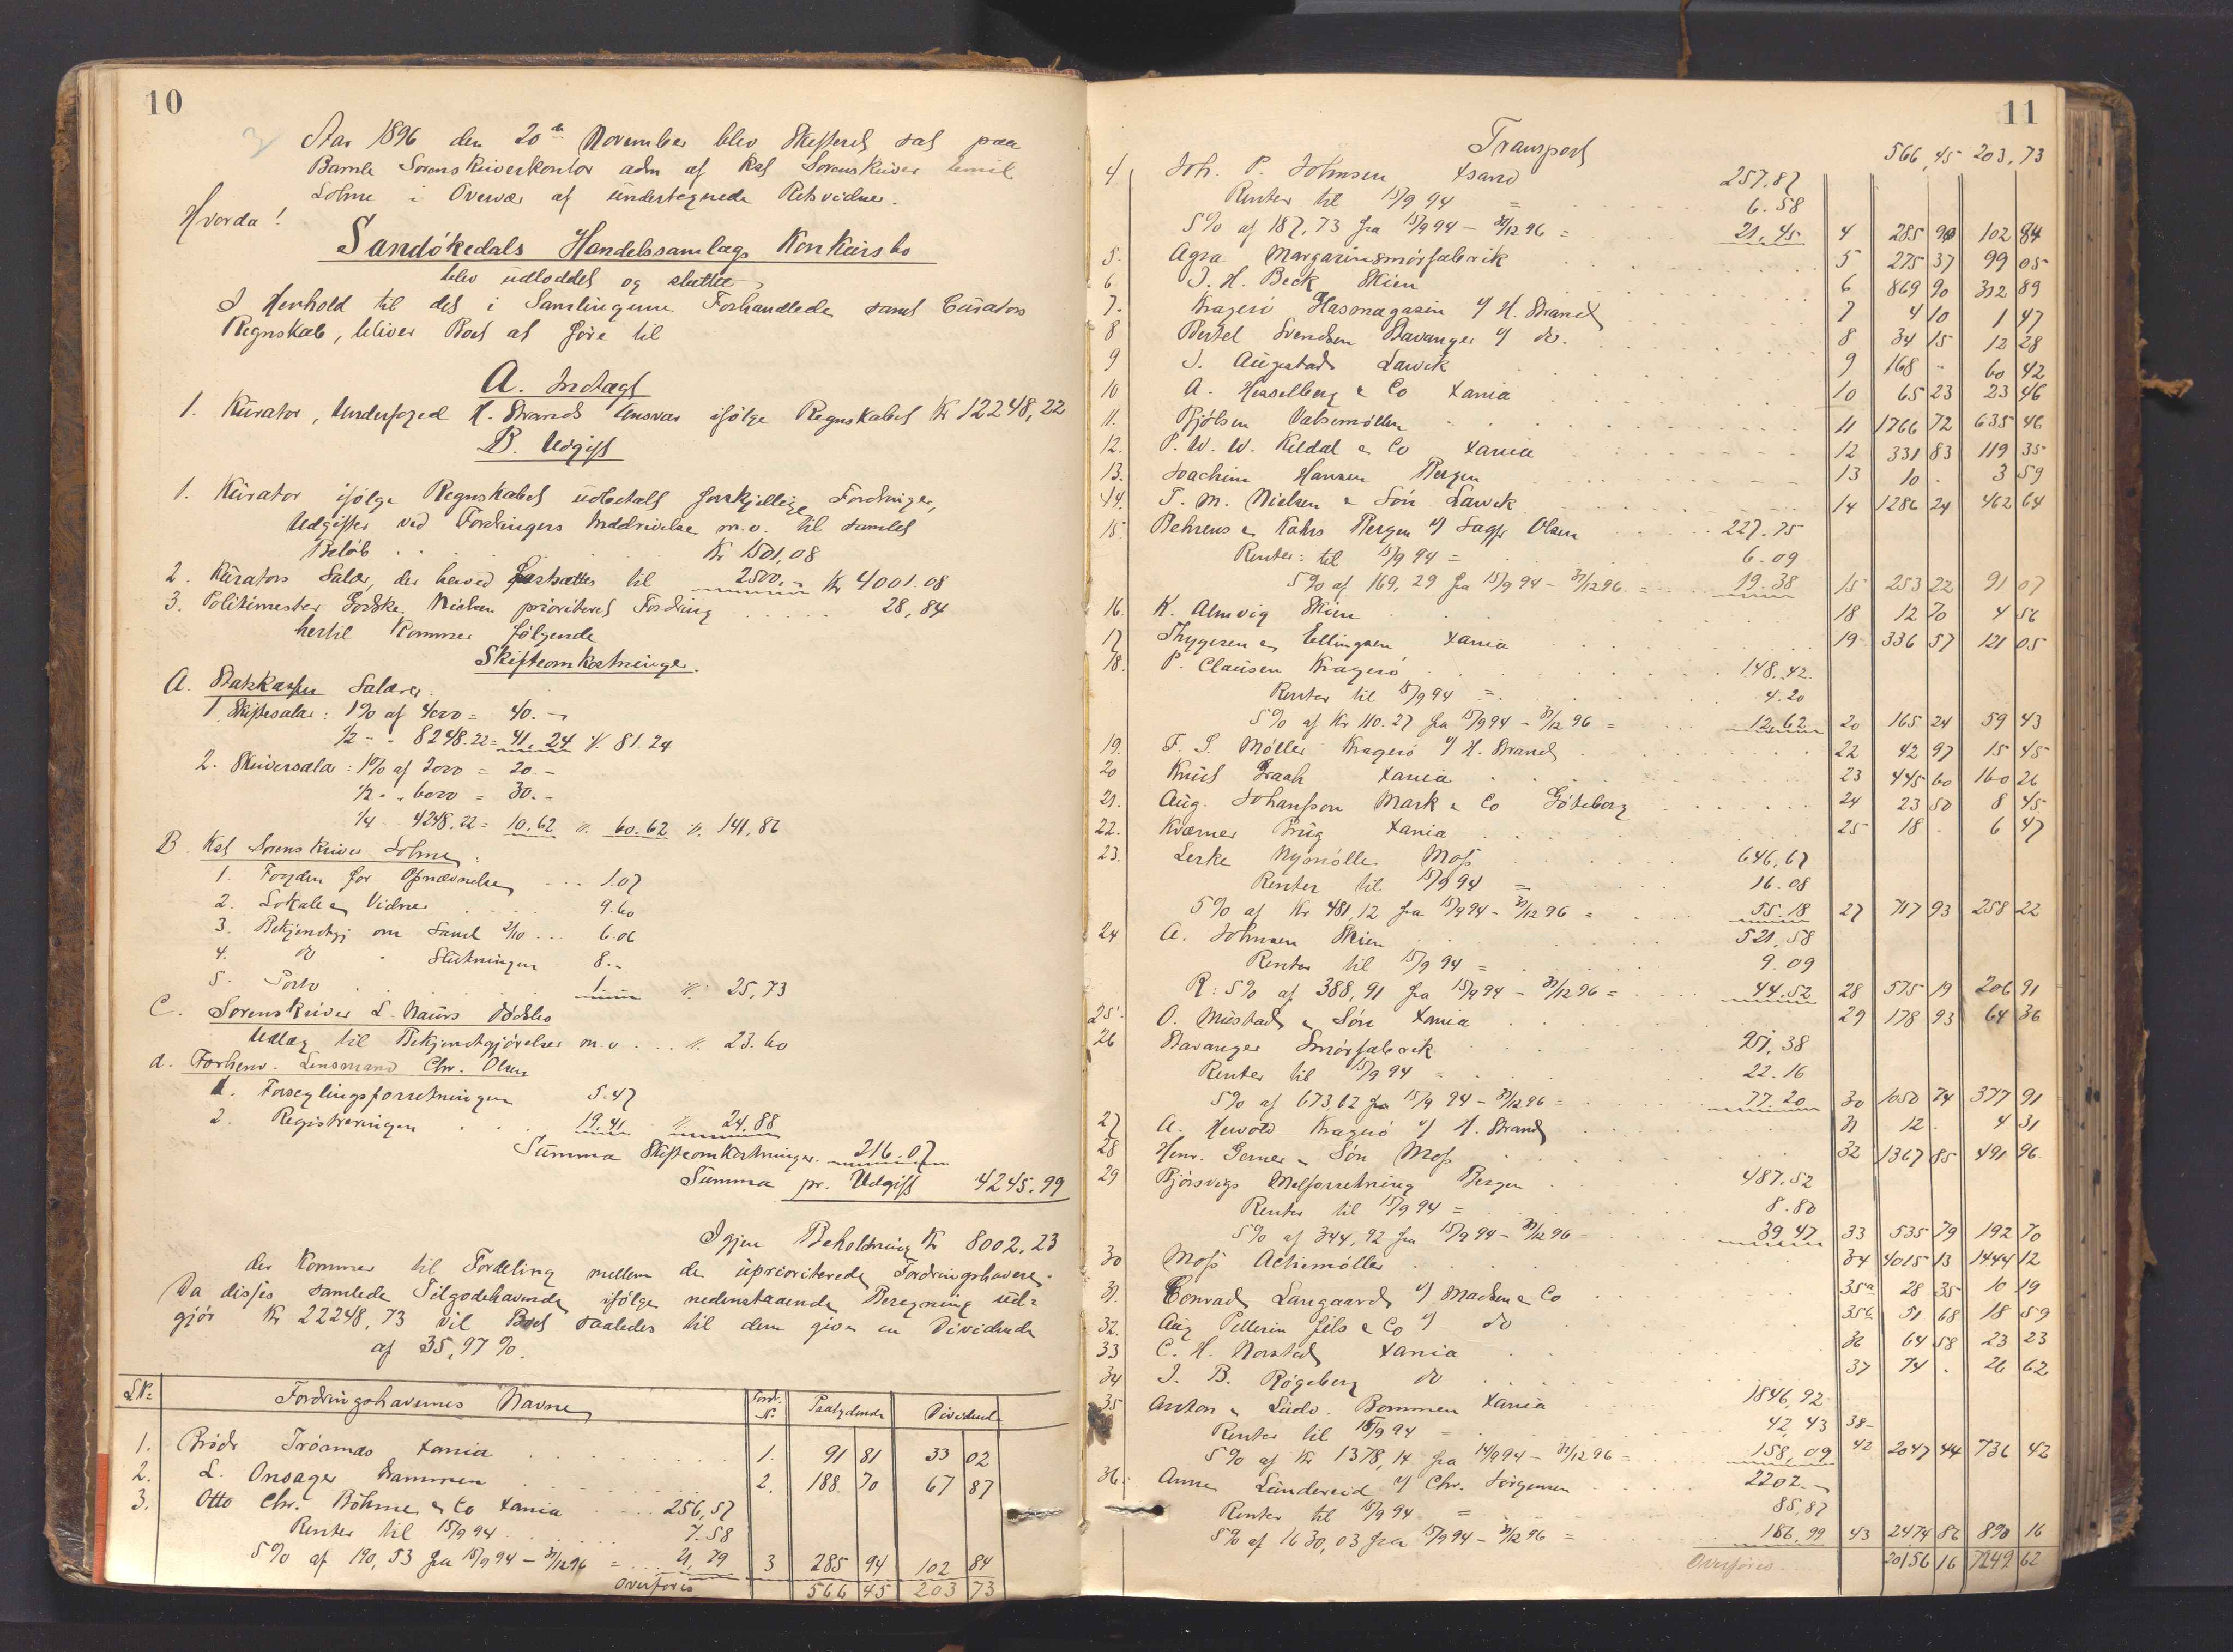 10
Aar 1896 den 20de November blev Skifteret sat paa
Bamle Sorenskriverkontor adm af Kst Sorenskriver Emil
Lohne i Overvær af undertegnede Retsvidner.
Hvorda!
Sandökedals Handelssamlags Konkursbo
blev udloddet og sluttet
I Henhold til det i Samlingerne Forhandlede samt Curators
Regnskab, bliver Boet at före til
A. Indtægt
1. Kurator, Underfoged H. Strands Ansvar ifölge Regnskabet Kr 12248,22
B. Udgift
1. Kurator ifölge Regnskabet udbetalt forskjellige Fordringer,
Udgifter ved Fordringers Inddrivelse m.v. til samlet
Belöb . . . Kr 1501,08
2. Kurators Salær, der herved fastsættes til 2500.- Kr 4001.08
3. Politimester Godske Nielsen prioriteret Fordring . . . . . 28,84
hertil kommer følgende
Skifteomkostninger.
A. Statskassen Salærer
1 Skiftesalær: 1% af 4000 = 40.-
1/2 - - 8248.22 = 41,24 %. 81.24
2. Skriversalær: 1% af 2000 = 20.-
1/2 - - 6000 = 30.-
1/4 - - 4248.22 = 10.62 %. 60.62 %. 141,86
B. Kst Sorenskriver Lohne:
1. Forden for Opnævnelse . . . 1.07
2. Lokale & Vidner 9.60
3. Bekjendtgj om Saml 2/10 . . . 6.06
4. do - Slutningen 8.-
5. Porto . . . . 1.- %. 25,73
C. Sorenskriver L. Naurs Dödsbo
Udlæg til Bekjendtgjörelser m.v. . . %. 23.60
d. Forhenv. Lensmand Chr. Olsen
1. Forseglingsforretningen 5.47
2. Registreringen . . . 19.41 %. 24.88
Summa Skifteomkostninger. 216.07
Summa pr. Udgift 4245.99
Igjen Beholdning Kr 8002.23
der kommer til Fordeling mellem de uprioriterede Fordringshavere.
Da disses samlede Tilgodehavende ifölge nedenstaaende Beregning ud=
gjör Kr 22248,73 vil Boet saaledes til dem give en Dividende
af 35,97%.
LN: Fordringshavernes Navne Fordr. N: Paalydende Dividende
1. Brödr Trösnæs Xania . . . 1. 91 81 33 02
2. L. Onsager Drammen . . . 2. 188 70 67 87
3. Otto Chr. Böhme & Co Xania . . . 256,57
Renter til 15/9 94 . . . 7.58
5% af 190,53 fra 15/9 94 - 31/12 96 = . . 21,79 3 285 94 102 84
Overføres 566 45 203 73
11
Transport 566,45 203,73
4 Joh. P. Johnsen Xsand 257.87
Renter til 15/9 94 = 6.58
5% af 187,73 fra 15/9 94 - 31/12 96 = 21,45 4 285 90 102 84
5. Agra Margarinsmörfabrik 5 275 37 99 05
6. J. H. Beck Skien 6 869 90 312 89
7. Kragerö Glasmagasin v/ H. Strand 7 4 10 1 47
8 Bertel Svendsen Stavanger v/ do. 8 34 15 12 28
9 J. Augestad Larvik 9 168 - 60 42
10 A. Hesselberg & Co Xania 10 65 23 23 46
11. Bjölsen Valsemöllen 11 1766 72 635 46
12. P. W. W. Kildal & Co Xania 12 331 83 119 35
13. Joachim Hansen Bergen 13 10 - 3 59
14. T. M. Nielsen & Sön Larvik 14 1286 24 462 64
15. Behrens & Kahrs Bergen v/ Sagf Olsen 227.75
Renter: til 15/9 94 = 6.09
5% af 169,29 fra 15/9 94 - 31/12 96. = 19.38 15 253 22 91 07
16. K. Almvig Skien 18 12 70 4 56
17 Thygesen & Ellingsen Xania 19 336 57 121 05
18. P. Clausen Kragerö 148.42.
Renter til 15/9 94 = 4.20
5% af Kr 110.27 fra 15/9 94 - 31/12 96 = 12,62 20 165 24 59 43
19. F. S. Möller Kragerö v/ H. Strand 22 42 97 15 45
20 Knud Graah Xania 23 445 60 160 26
21. Aug. Johansson Mark & Co Göteborg 24 23 50 8 45
22. Kværner Brug Xania 25 18 - 6 47
23. Lerke Nymölle Moss 646,67
Renter til 15/9 94 = 16.08
5% af Kr 481,12 fra 15/9 94 - 31/12 96 = 55.18 27 717 93 258 22
24 A. Johnsen Skien 521,58
Renter til 15/9 94 = 9.09
R: 5% af 388,91 fra 15/9 94 - 31/12 96 = 44.52 28 575 19 206 91
25. O. Mustad & Sön Xania 29 178 93 64 36
26 Stavanger Smörfabrik 951,38
Renter til 15/9 94 = 22.16
5% af 673,62 fra 15/9 94 - 31/12 96 = 77.20 30 1050 74 377 91
27 A. Hewold Kragerö v/ H. Strand 31 12 - 4 31
28 Henr. Gerner & Sön Moss 32 1367 85 491 96.
29 Björsvigs Melforretning Bergen 487.52
Renter til 15/9 94 = 8.80
5% af 344,92 fra 15/9 94 - 31/12 96 = 39,47 33 535 79 192 70
30 Moss Actiemöller 34 4015 13 1444 12
31. Conrad Langaard v/ Madsen & Co 35a 28 35 10 19
32. Aug Pellerin fils & Co v/ do 35b 51 68 18 59
33 C. H. Norstad Xania 36 64 58 23 23
34 J. B. Rögeberg do 37 74 - 26 62
35 Anton & Ludv. Bommen Xania 1846,92
Renter til 15/9 94 = 42,43 38-
5% af Kr 1378,14 fra 14/9 94 - 31/12 96 = 158,09 42 2047 44 736 42
36. Anne Landereid v/ Chr. Jörgensen 2202.-
Renter til 15/9 94 = 85,87
5% af 1630,03 fra 15/9 94 - 31/12 96 = 186,99 43 2474 86 890 16
Overföres 20156 16 7249 62